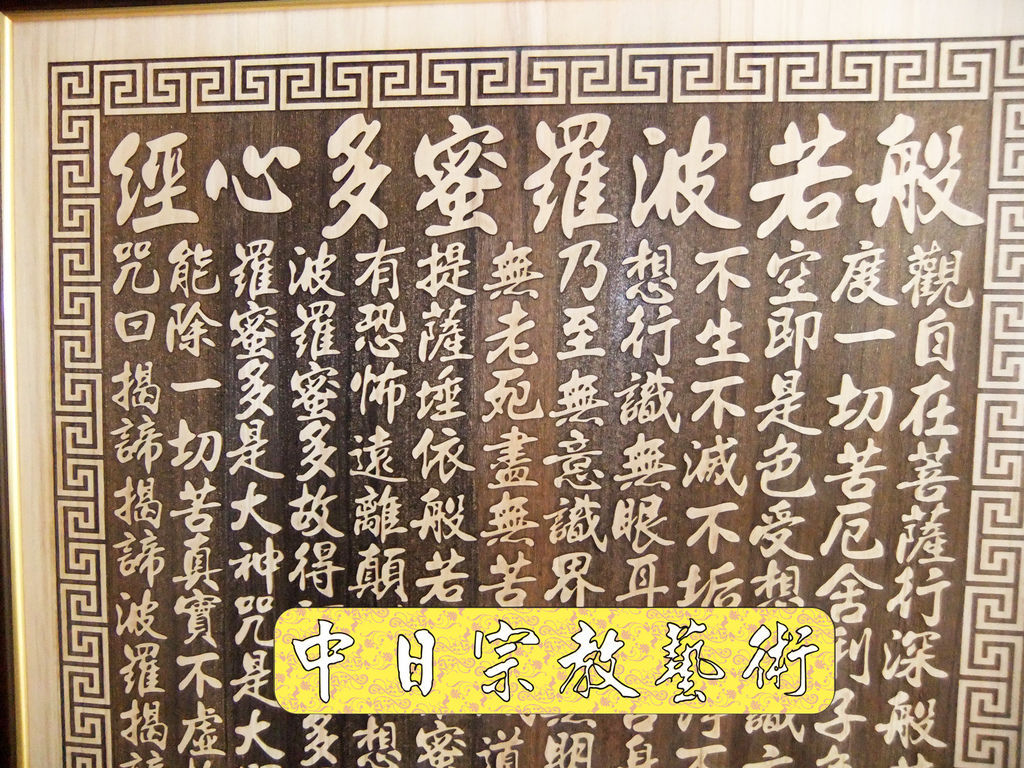 般若波羅蜜多心經
觀自在菩薩行深般
度一切苦厄舍利子
空即是色受想
不生不滅不垢
想行識無眼耳
乃至無意識界
無老死盡無苦
道
提薩埵依般若
蜜
有恐怖遠離顛
想
波羅蜜多故得
多
羅蜜多是大神咒是大
能除一切苦真實不虛
咒曰揭諦揭諦波羅揭諦
中日宗教藝術